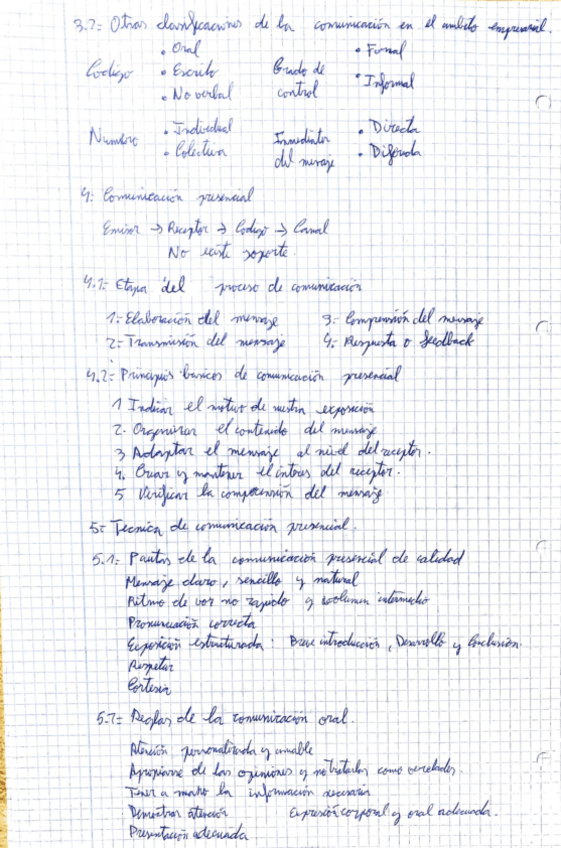 3.2= Otras clasificaciones de la comunicación en el ambito empresarial.
Codigo • Oral • Escrito • No verbal
Grado de control • Formal • Informal
Numero • Individual • Colectiva
Inmediatez del mensaje • Directa • Diferida
4: Comunicación presencial
Emisor → Receptor → Codigo → Canal
No existe soporte.
4.1: Etapa del proceso de comunicación
1= Elaboración del mensaje 3= Comprensión del mensaje
2= Transmisión del mensaje 4= Respuesta o feedback
4.2= Principios basicos de comunicación presencial
1 Indicar el motivo de nuestra exposición
2- Organizar el contenido del mensaje
3 Adaptar el mensaje al nivel del receptor.
4. Crear y mantener el interes del receptor.
5 Verificar la comprensión del mensaje
5= Tecnica de comunicación presencial.
5.1= Pautas de la comunicación presencial de calidad
Mensaje claro, sencillo y natural
Ritmo de voz no rapido y volumen intermedio
Pronunciación correcta
Exposición estructurada: Breve introducción, Desarrollo y Conclusión.
Respetar
Cortesia
5.2= Reglas de la comunicación oral.
Atención personalizada y amable
Apropiarse de las opiniones y no tratarlas como verdades.
Tener a mano la información necesaria
Demostrar atención Expresión corporal y oral adecuada.
Presentación adecuada